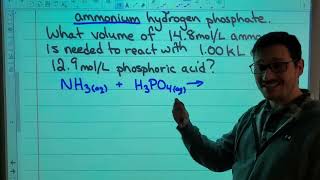 ammonium hydrogen phosphate.
What volume of 14.8mol/L
Is needed to react with 1.00 kL
12.9mol/L phosphoric acid?
NH₃(aq) + H₃PO₄(aq) →